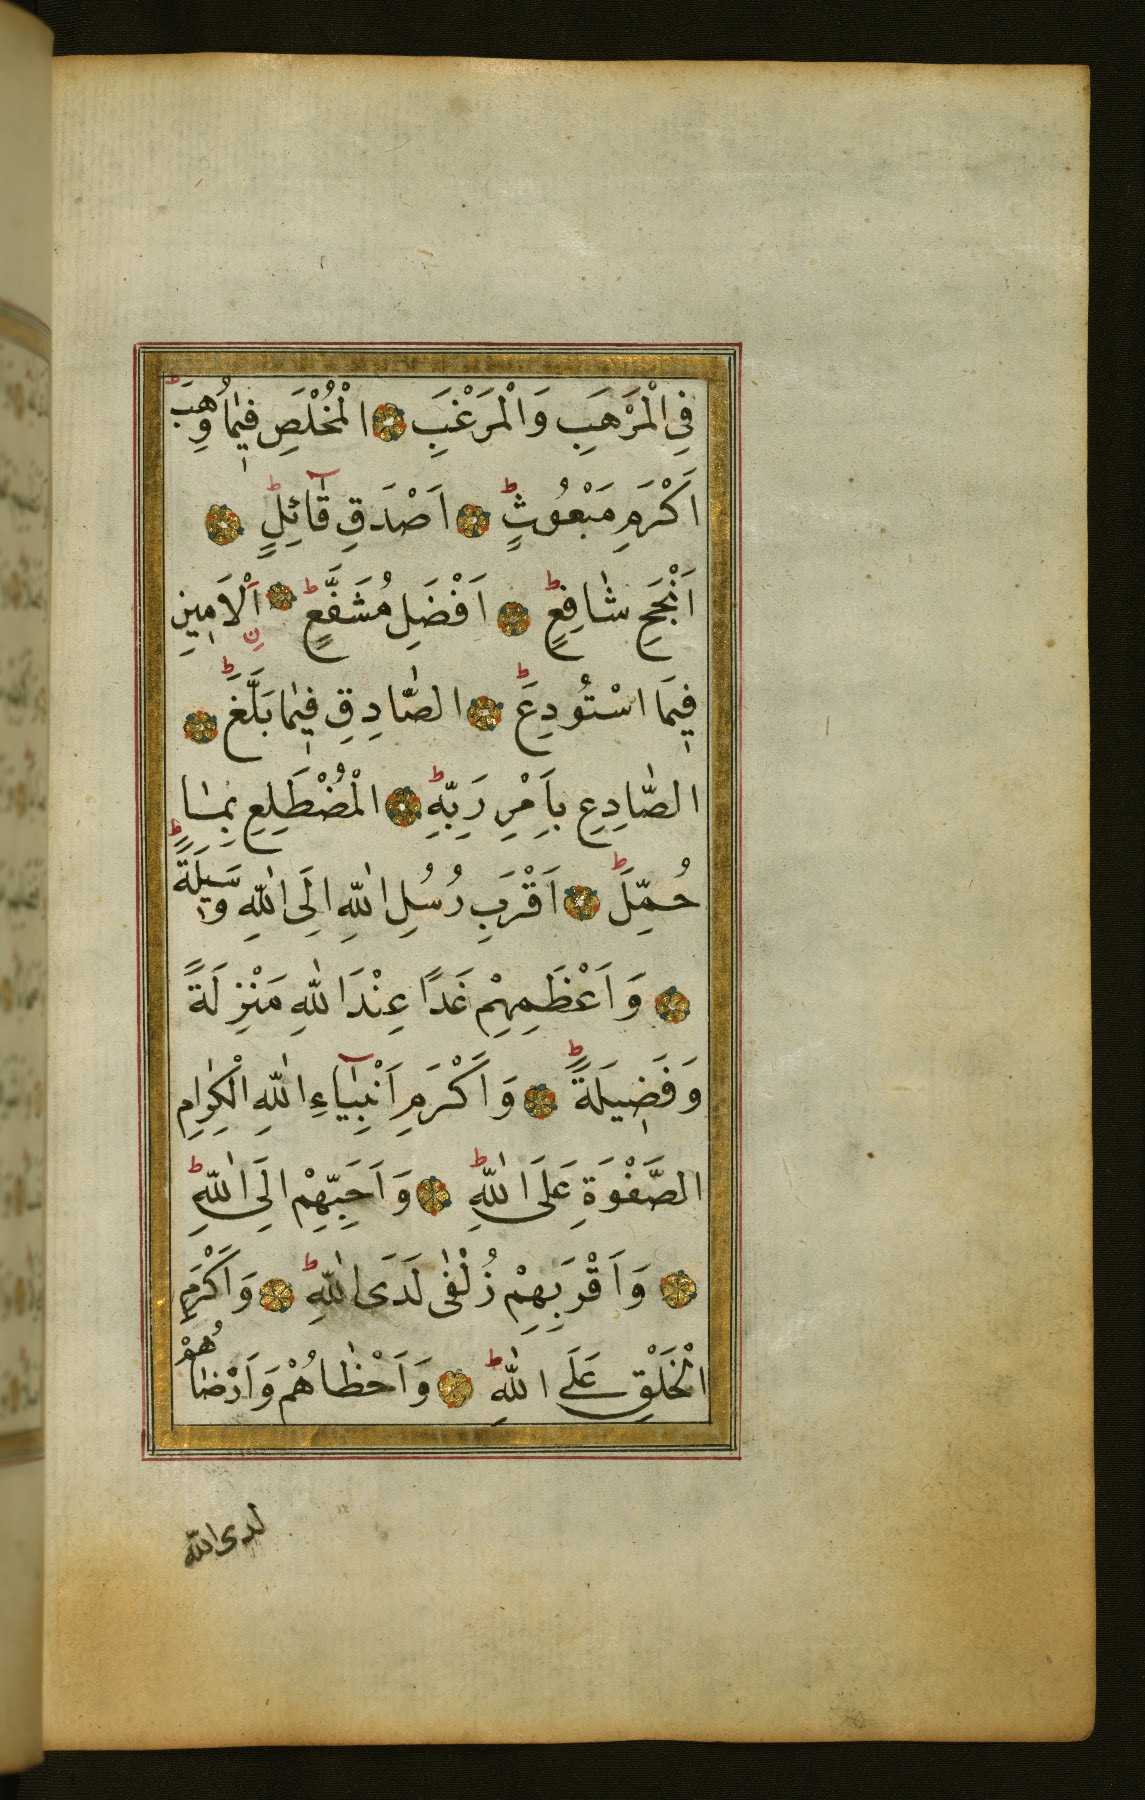 فِى الْمَرْهَبِ وَالْمَرْغَبِ الْمُخْلَصِ فِيمَا وُهِبَ
اَكْرَمِ مَبْعُوثٍ اَصْدَقِ قَآئِلٍ
اَنْجَحِ شَافِعٍ اَفْضَلِ مُشَفَّعٍ اَلْاَمِينِ
فِيمَا اسْتُودِعَ الصَّادِقِ فِيمَا بَلَّغَ
الصَّادِعِ بِاَمْرِ رَبِّهِ الْمُضْطَلِعِ بِمَا
حُمِّلَ اَقْرَبِ رُسُلِ اللّٰهِ اِلَى اللّٰهِ وَسِيلَةً
وَاَعْظَمِهِمْ غَدًا عِنْدَ اللّٰهِ مَنْزِلَةً
وَفَضِيلَةً وَاَكْرَمِ اَنْبِيَآءِ اللّٰهِ الْكِرَامِ
الصَّفْوَةِ عَلَى اللّٰهِ وَاَحَبِّهِمْ اِلَى اللّٰهِ
وَاَقْرَبِهِمْ زُلْفٰى لَدَى اللّٰهِ وَاَكْرَمِ
الْخَلْقِ عَلَى اللّٰهِ وَاَحْظَاهُمْ وَاَرْضَاهُمْ
لدى الله